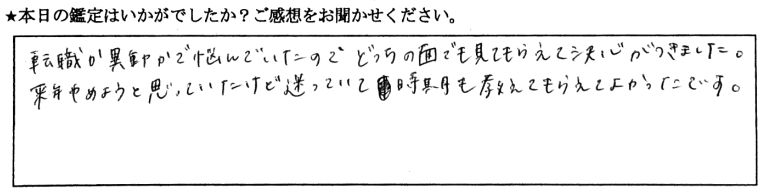 ★本日の鑑定はいかがでしたか？ご感想をお聞かせください。
転職か異動かで悩んでいたのでどっちの面でも見てもらえて決心がつきました。
来年やめようと思っていたけど迷っていて時期も教えてもらえてよかったです。